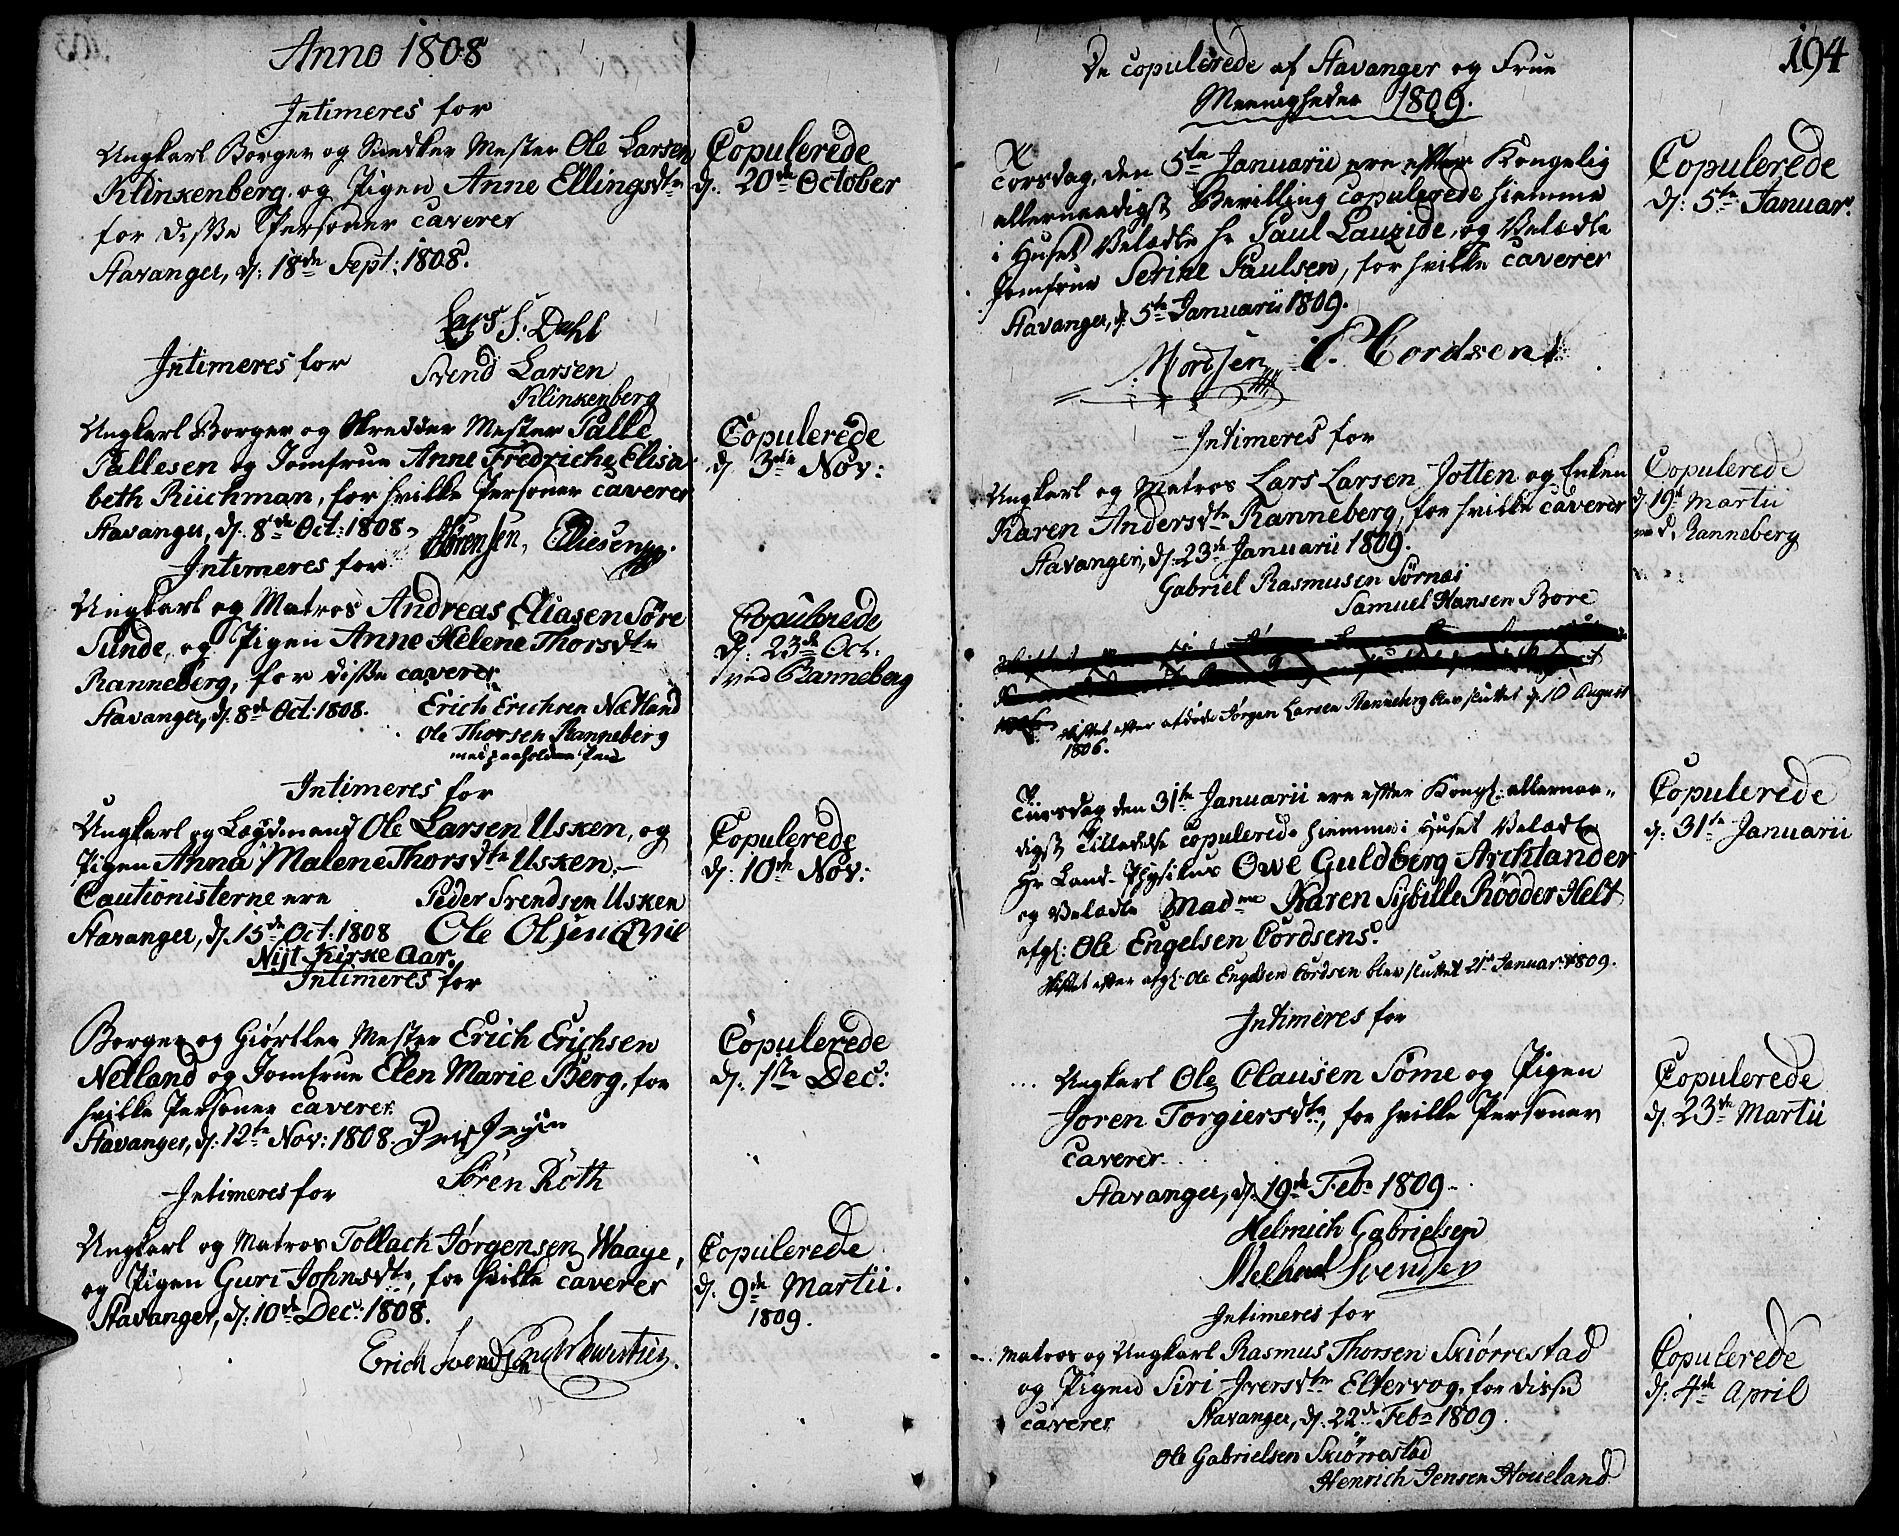 Anno 1808
Intimeres for
Ungkarl Borger og Snedker Mester Ole Larsen
Klinkenberg, og Pigen Anne Ellingsdtr
for disse Personer caverer
Stavanger, d: 18de Sept: 1808.
Lars S. Dahl
Svend Larsen
Klinkenberg
Copulerede
d: 20de October
Intimeres for
Ungkarl Borger og Skredder Mester Palle
Pallesen og Jomfrue Anne Fredriche Elisa
beth Riichman, for hvilke Personer caverer
Stavanger, d: 8de Oct: 1808.
Sörensen, Elliesen
Copulerede
d: 3die Nov:
Intimeres for
Ungkarl og Matros Andreas Eliasen Söre
Sunde, og Pigen Anne Helene Thorsdtr
Ranneberg, for disse caverer
Stavanger, d: 8de Oct: 1808.
Erich Erichsen Nætland
Ole Thorsen Ranneberg
med paaholden Pen
Copulerede
d: 23de Oct.
ved Ranneberg
Intimeres for
Ungkarl og Leydmand Ole Larsen Usken, og
Pigen Anna Malene Thorsdtr Usken,
Cautionisterne ere
Stavanger, d: 15de Oct: 1808
Peder Svendsen Usken
Ole Olsen
Copulerede
d: 10de Nov:
Nÿt Kirke Aar.
Intimeres for
Borger og Giörtler Mester Erich Erichsen
Netland og Jomfrue Elen Marie Berg, for
hvilke Personer caverer
Stavanger, d: 12te Nov: 1808.
Sören Roth
Copulerede
d: 1ste Dec:
Intimeres for
Ungkarl og Matros Tollach Jørgensen Waage,
og Pigen Guri Johnsdtr, for hvilke caverer
Stavanger, d: 10de Dec: 1808.
Erich Svendsen
Copulerede
d: 9de Martii.
1809.
194
De copulerede af Stavanger og Frue
Meenigheder 1809.
Torsdag, den 5te Januarii ere efter Kongelig
allernaadigst Bevilling copulerede hiemme
i Huset Velædle Hr Paul Lauzide, og Velædle
Jomfrue Serine Paulsen, for hvilke caverer
Stavanger, d: 5te Januarii 1809.
Mordsen P. Cordsen
Copulerede
d: 5te Januar.
Intimeres for
Ungkarl og Matros Lars Larsen Jotten og Enken
Karen Andersdtr Ranneberg, for hvilke caverer
Stavanger, d: 23de Januarii 1809.
Gabriel Rasmusen Sørnæs
Samuel Hansen Bore
Skiftet efter afdøde Jörgen Larsen Ranneberg blev sluttet d: 10 August
1806.
Copulerede
d: 19de Martii
ved Ranneberg
Tiirsdag den 31te Januarii ere efter Kongl: allernaa-
digst Tilladelse copulerede hiemme i Huset Velædle
Hr Land-Physikus Owe Guldberg Archtander
og Velædle Madme Karen Sÿbille Rödder Helt
afgl: Ole Engelsen Cordsens.
Skiftet efter afgl: Ole Engelsen Cordsen blev sluttet 21de Januar: 1809.
Copulerede
d: 31te Januarii
Intimeres for
Ungkarl Ole Clausen Söme og Pigen
Joren Torgiersdtr, for hvilke Personer
caverer
Stavanger, d: 19de Feb: 1809
Helmich Gabrielsen
Michael Svendsen
Copulerede
d: 23de Martii
Intimeres for
Matros og Ungkarl Rasmus Thorsen Skiörrestad
og Pigen Siri Iversdtr Eltervog, for disse
caverer Stavanger, d: 22de Feb: 1809.
Ole Gabrielsen Skiörrestad
Henrich Jensen Houeland
Copulerede
d: 4de April